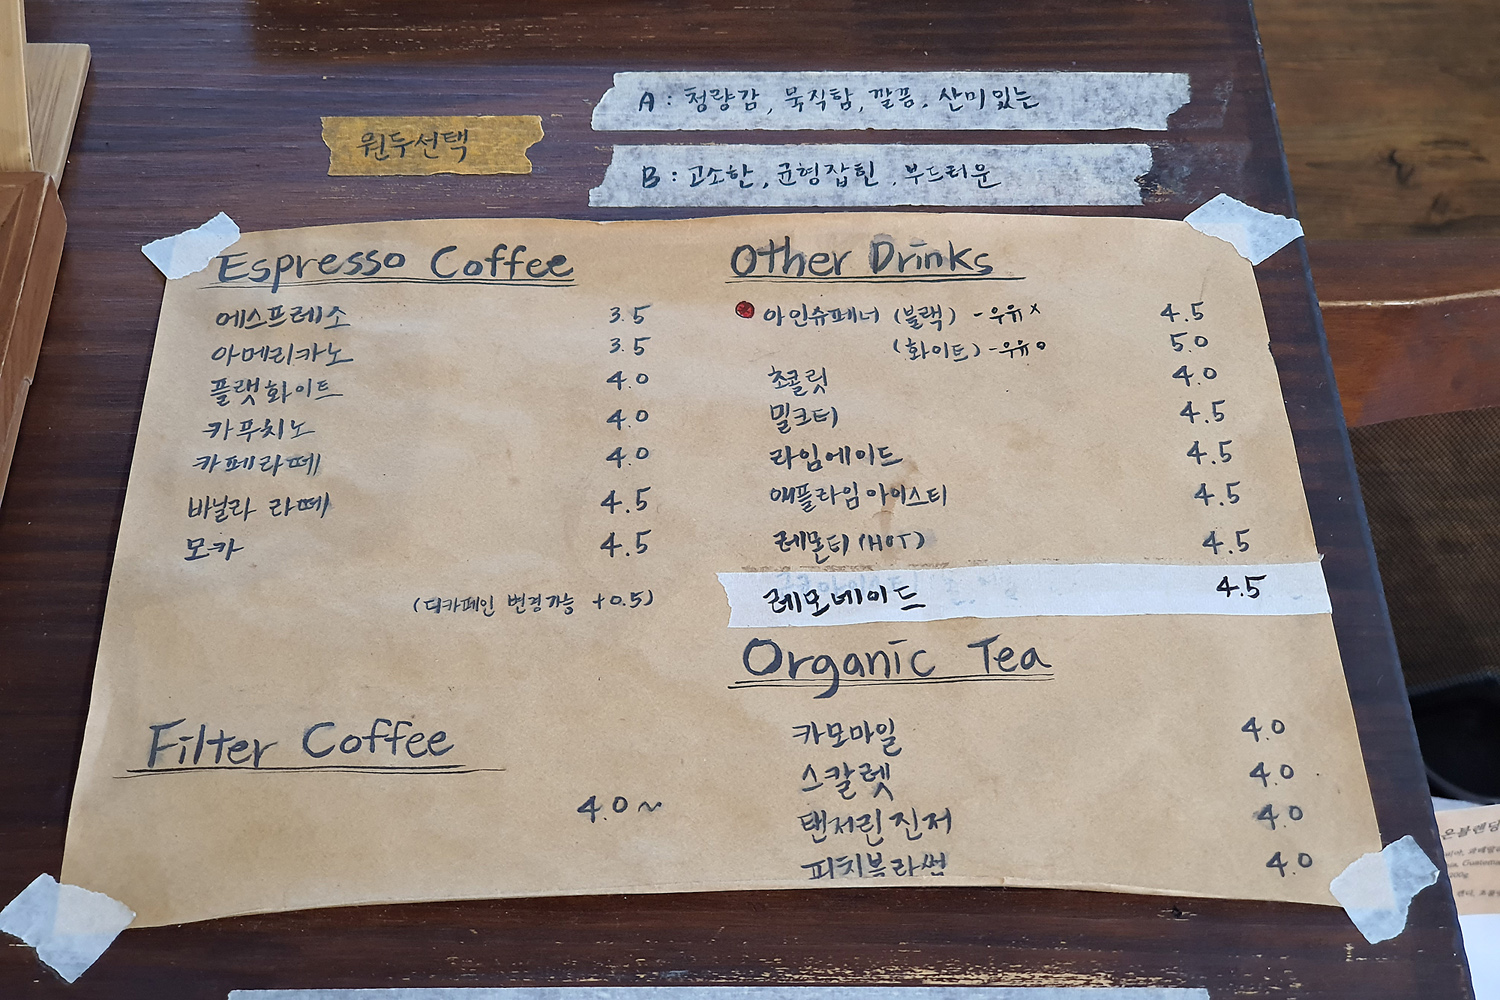 원두선택
A : 청량감, 묵직함, 깔끔, 산미있는
B : 고소한, 균형잡힌, 부드러운
Espresso Coffee
에스프레소 3.5
아메리카노 3.5
플랫화이트 4.0
카푸치노 4.0
카페라떼 4.0
바닐라 라떼 4.5
모카 4.5
(디카페인 변경가능 +0.5)
Filter Coffee
4.0~
Other Drinks
아인슈페너 (블랙) -우유x 4.5
(화이트) -우유o 5.0
초콜릿 4.0
밀크티 4.5
라임에이드 4.5
애플라임아이스티 4.5
레몬티 (HOT) 4.5
레모네이드 4.5
Organic Tea
카모마일 4.0
스칼렛 4.0
탠저린진저 4.0
피치블라썸 4.0
은블렌딩